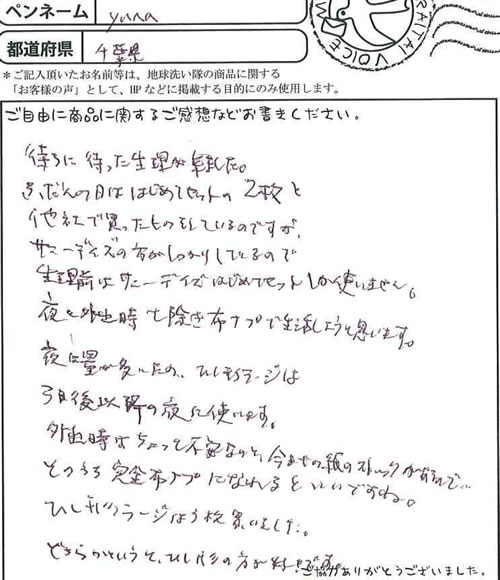 ペンネーム yuna
都道府県 千葉県
*ご記入頂いたお名前等は、地球洗い隊の商品に関する
「お客様の声」として、HPなどに掲載する目的にのみ使用します。
ARATAI VOICE
ご自由に商品に関するご感想などお書きください。
待ちに待った生理が来ました。
ふだんの日は はじめてセットの2枚と
他社で買ったものを しているのですが、
サニーデイズの方がしっかりしているので
生理前はサニーデイズはじめてセットしか使いません。
夜と外出時も除き布ナプで生活しようと思います。
夜は量が多いため、ひし形ラージは
3日後以降の夜に使います。
外出時はちょっと不安なのと、今までの紙のストックがあるので…
そのうち完全布ナプになれるといいですね。
ひし形ラージは3枚買いました。
どちらかというと、ひし形の方が好きです。
ご協力ありがとうございました。